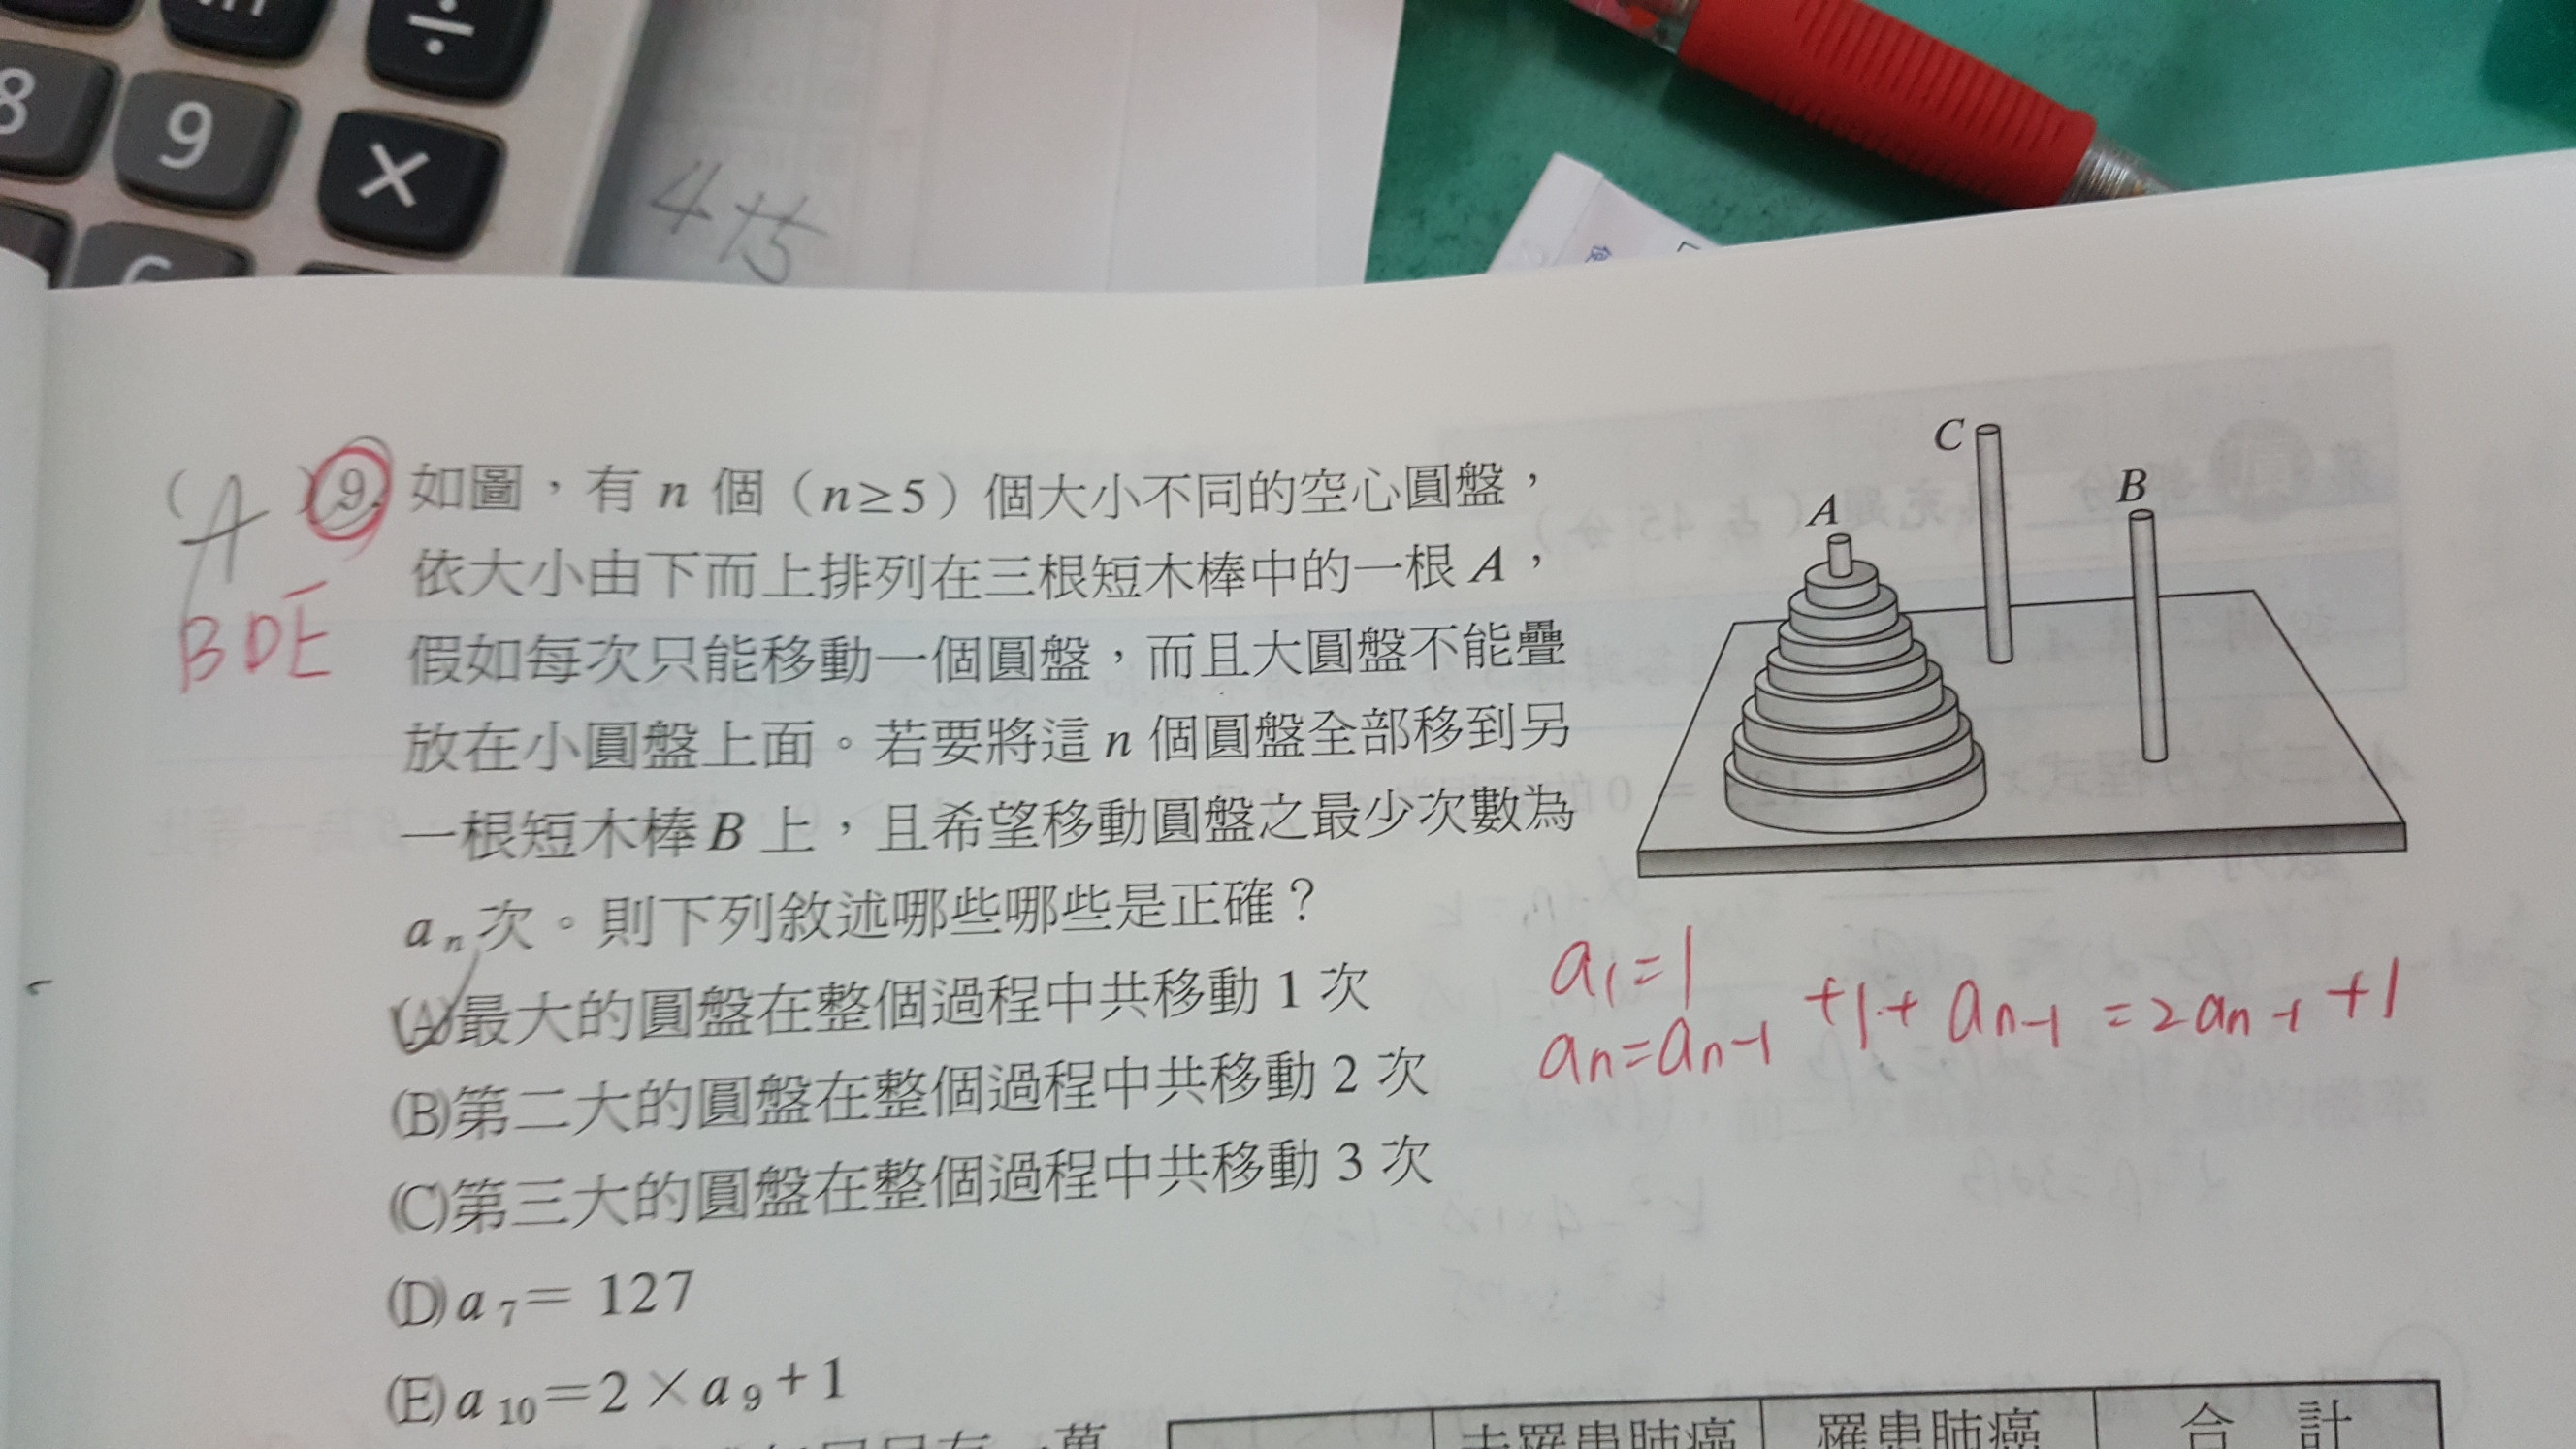 ÷
8
9
×
6
4
C
B
A
( A ) 9. 如圖，有 n 個（n≥5）個大小不同的空心圓盤，
依大小由下而上排列在三根短木棒中的一根 A，
BDE
假如每次只能移動一個圓盤，而且大圓盤不能疊
放在小圓盤上面。若要將這 n 個圓盤全部移到另
一根短木棒 B 上，且希望移動圓盤之最少次數為
aₙ 次。則下列敘述哪些哪些是正確？
(A)最大的圓盤在整個過程中共移動 1 次
(B)第二大的圓盤在整個過程中共移動 2 次
(C)第三大的圓盤在整個過程中共移動 3 次
(D) a₇ = 127
(E) a₁₀ = 2 × a₉ + 1
a₁=1
aₙ=aₙ₋₁+1+aₙ₋₁=2aₙ₋₁+1
未羅患肺癌 羅患肺癌 合 計